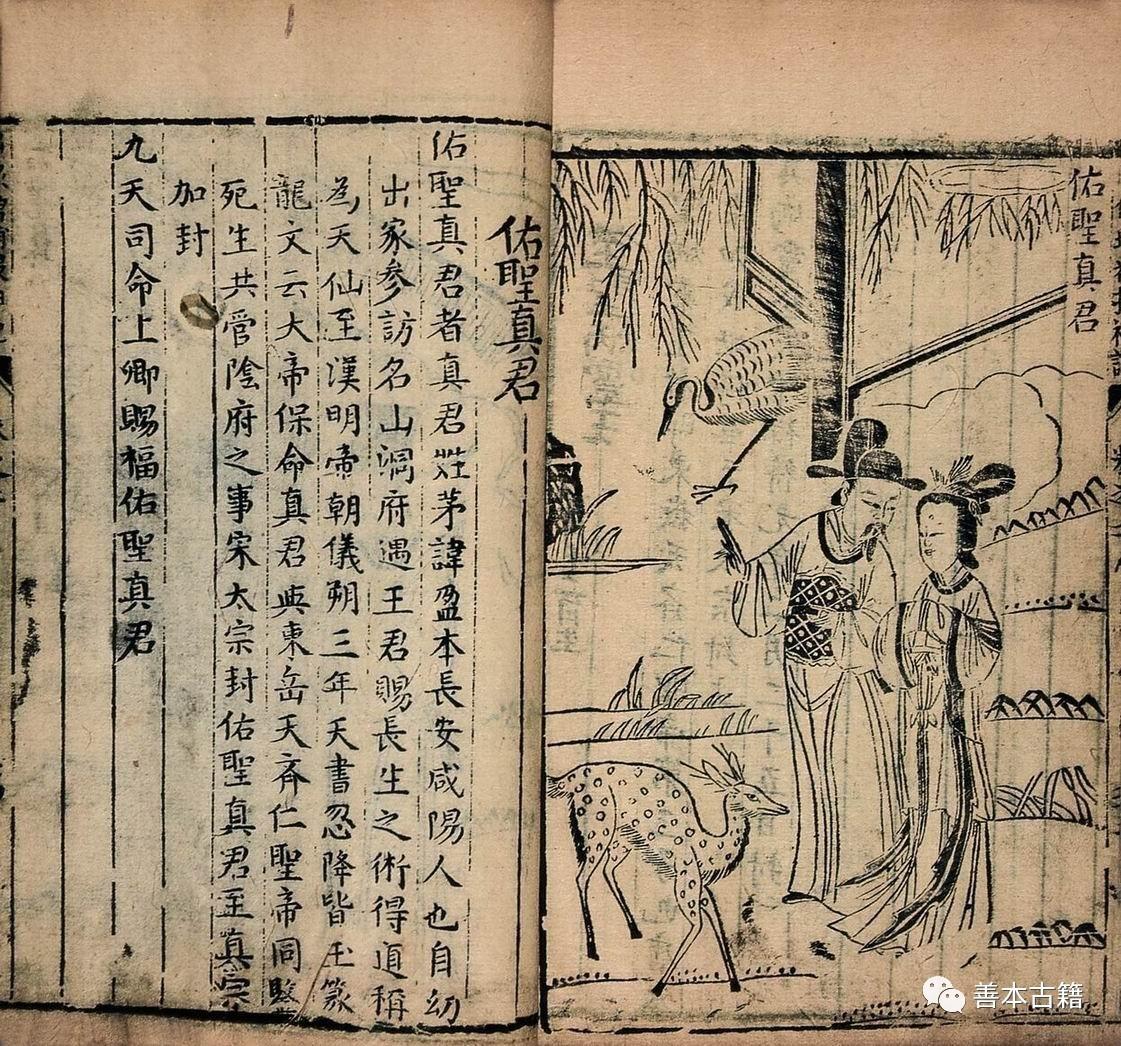 佑聖真君
佑聖真君
佑聖真君者真君姓茅諱盈本長安咸陽人也自幼
出家參訪名山洞府遇王君賜長生之術得道稱
為天仙至漢明帝朝儀朔三年天書忽降皆玉篆
龍文云大帝保命真君與東岳天齊仁聖帝同
死生共管陰府之事宋太宗封佑聖真君至真宗
加封
九天司命上卿賜福佑聖真君
善本古籍